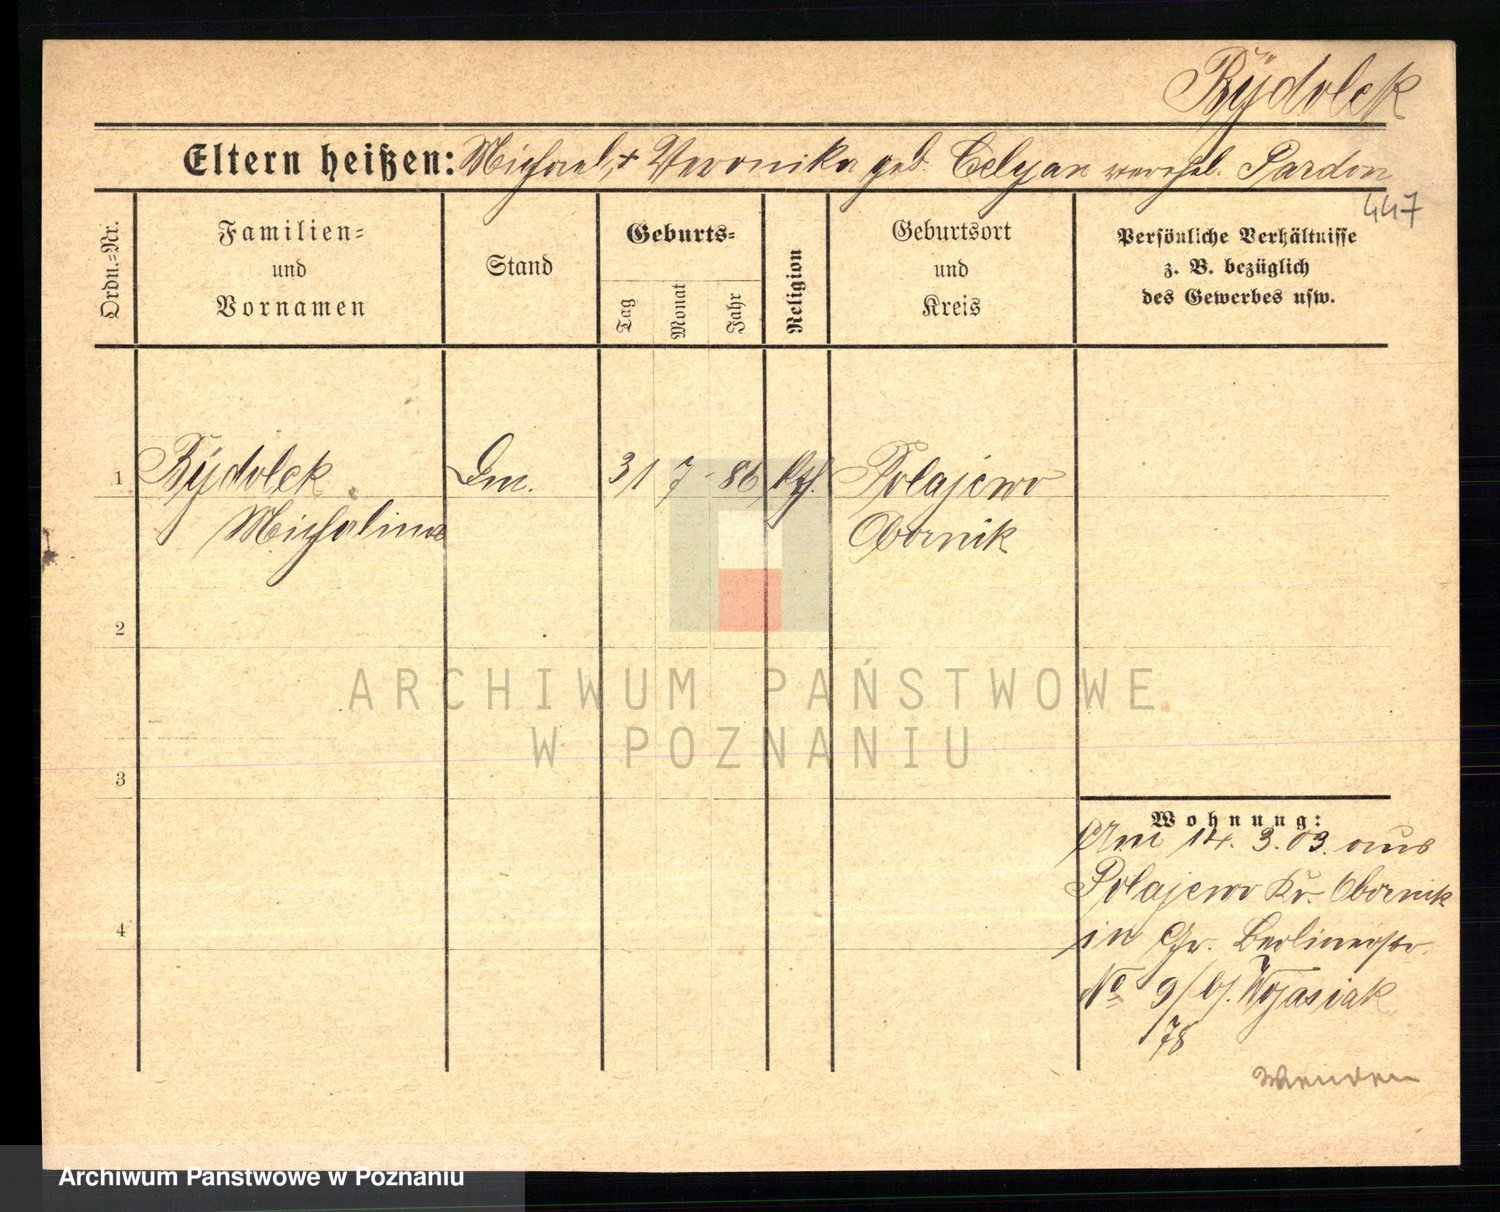 Rÿdolek
Eltern heißen: Michael, + Veronika geb. Celyan verehel. Pardon
447
Ordn.-Nr.
Familien-
und
Vornamen
Stand
Geburts-
Tag
Monat
Jahr
Religion
Geburtsort
und
Kreis
Persönliche Verhältnisse
z. B. bezüglich
des Gewerbes usw.
1 Rÿdolek 31 7 86 kth. Polajewo
Michalina Obornik
2
3
4
Wohnung:
Am 14. 3. 03. aus
Polajewo Kr. Obornik
in Gr. Berlinerstr.
No 9/ bj. Wojasiak
78
Wenden
ARCHIWUM PAŃSTWOWE
W POZNANIU
Archiwum Państwowe w Poznaniu